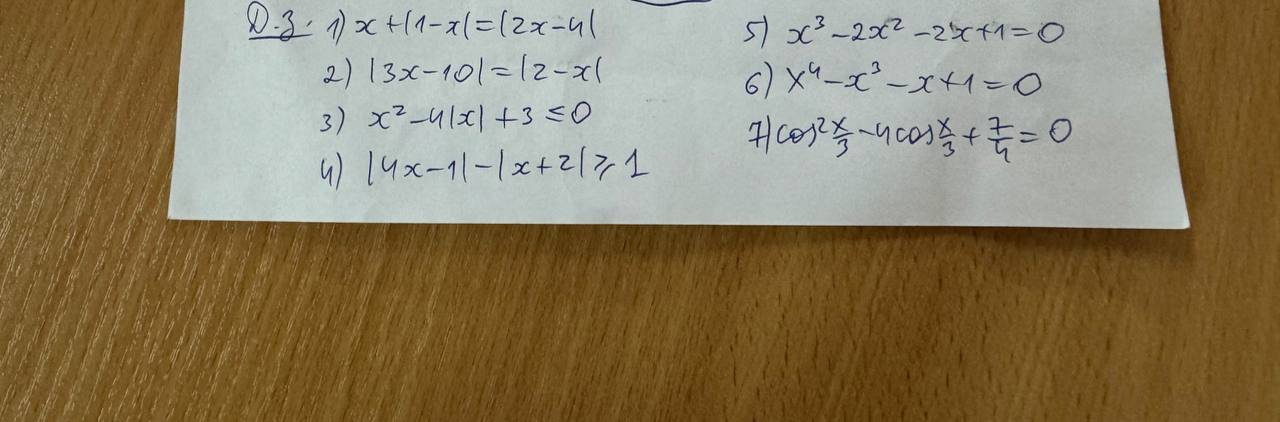 Д.з. 1) x+|1-x|=|2x-4|
2) |3x-10|=|2-x|
3) x²-4|x|+3≤0
4) |4x-1|-|x+2|⩾1
5) x³-2x²-2x+1=0
6) x⁴-x³-x+1=0
7) cos² x/3 -4cos x/3 + 7/4 = 0